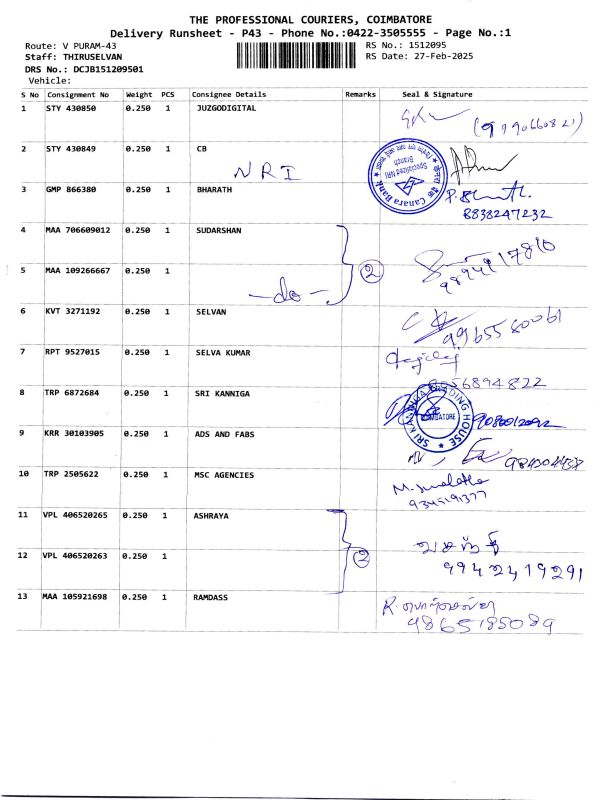 THE PROFESSIONAL COURIERS, COIMBATORE
Delivery Runsheet - P43 - Phone No.:0422-3505555 - Page No.:1
Route: V PURAM-43
RS No.: 1512095
Staff: THIRUSELVAN
RS Date: 27-Feb-2025
DRS No.: DCJB151209501
Vehicle:
S No Consignment No Weight PCS Consignee Details Remarks Seal & Signature
1 STY 430850 0.250 1 JUZGODIGITAL
2 STY 430849 0.250 1 CB
NRI
Canara Bank
Specialized NRI
Branch
3 GMP 866380 0.250 1 BHARATH
8838247232
4 MAA 706609012 0.250 1 SUDARSHAN
2
5 MAA 109266667 0.250 1
-do-
6 KVT 3271192 0.250 1 SELVAN
9965580061
7 RPT 9527015 0.250 1 SELVA KUMAR
8 TRP 6872684 0.250 1 SRI KANNIGA
SRI KANNIGA TRADING HOUSE
COIMBATORE
9 KRR 30103905 0.250 1 ADS AND FABS
10 TRP 2505622 0.250 1 MSC AGENCIES
9345191377
11 VPL 406520265 0.250 1 ASHRAYA
2
12 VPL 406520263 0.250 1
9942419291
13 MAA 105921698 0.250 1 RAMDASS
9865185089